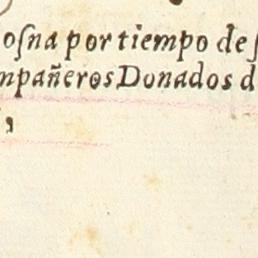 oſna por tiempo de ſ
mpañeros Donados d
,